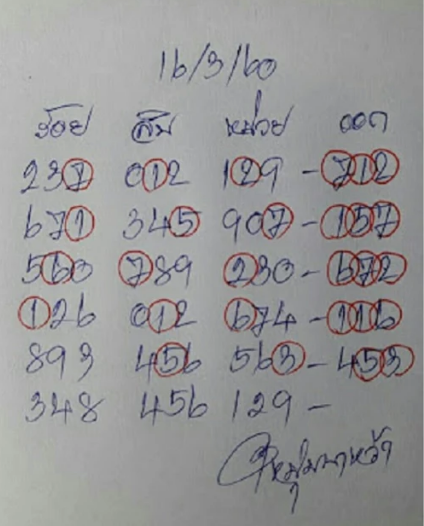 16/3/60
ร้อย สิบ หน่วย ออก
237 012 129 - 712
671 345 907 - 157
560 789 230 - 672
126 012 674 - 116
893 456 563 - 453
348 456 129 -